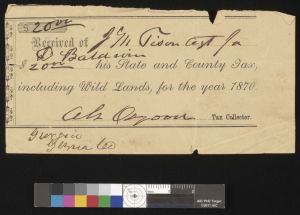 $ 20.00
Received of J. M. Tison Agt for
D Baldwin
$20.00 his State and County Tax,
including Wild Lands, for the year 1870.
Tax Collector.
Georgia
Glynn Co